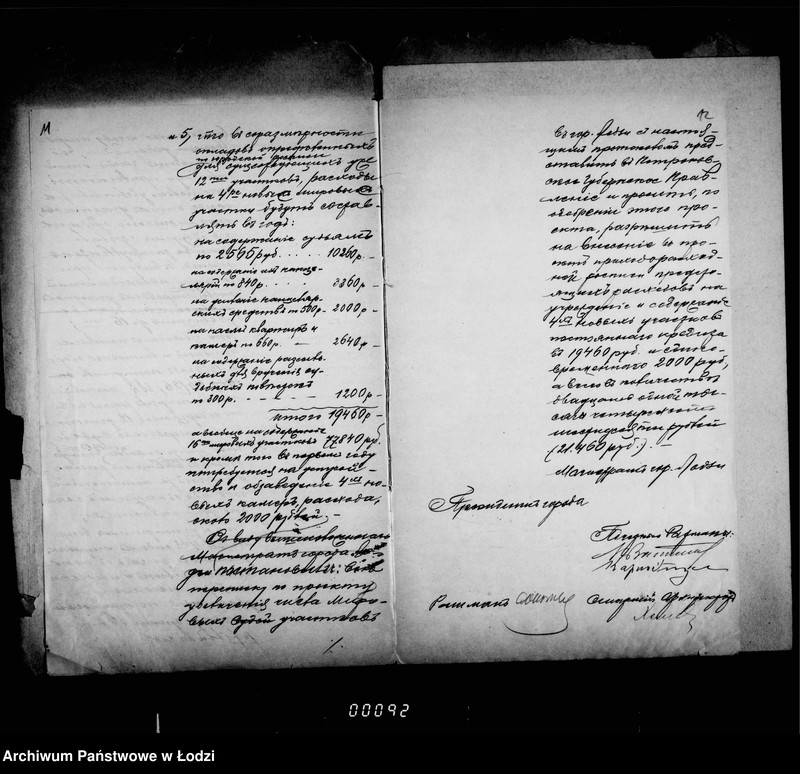 11
и 5, что въ соразмѣрности
окладовъ опредѣленныхъ
для существующихъ уже
12ти участковъ, расходы
на 4ре новыхъ мировыхъ
участка будутъ состав-
лять въ годъ:
на содержаніе судьямъ
по 2565 руб. . . . . 10260 р.
на содержаніе ихъ канце-
ляріи по 840 р. . . . . 3360 р.
на усиленіе канцеляр-
скихъ средствъ по 500 р. 2000 р.
на наемъ квартиръ и
камеръ по 660 р. — 2640 р.
на содержаніе разсыль-
ныхъ для врученія су-
дебныхъ повѣстокъ
по 300 р. - - - - 1200 р.
итого 19460 р.
а вообще на содержаніе
16ти мировыхъ участковъ 77840 руб.
и кромѣ того въ первомъ году
потребуется на устрой-
ство и обзаведеніе 4хъ но-
выхъ камеръ, расхода,
около 2000 рублей. —
Въ виду вышеизложеннаго
Магистратъ города
постановилъ:
переписку по проекту
увеличенія числа Миро-
выхъ Судей участковъ
12
въ гор. Лодзи съ настоя-
щимъ протоколомъ пред-
ставить въ Петроков-
ское Губернское Прав-
леніе и просить, по
одобреніи этого про-
екта, разрѣшить
на внесеніе въ про-
ектъ приходорасход-
ной росписи
расходовъ на
учрежденіе и содержаніе
4хъ новыхъ участковъ
постояннаго кредита
въ 19460 руб. и едино-
временнаго 2000 руб,
а всего въ количествѣ
двадцати одной ты-
сячи четырехсотъ
шестидесяти рублей
(21.460 руб.). —
Магистратъ гор. Лодзи
Президентъ города
00092
Archiwum Państwowe w Łodzi